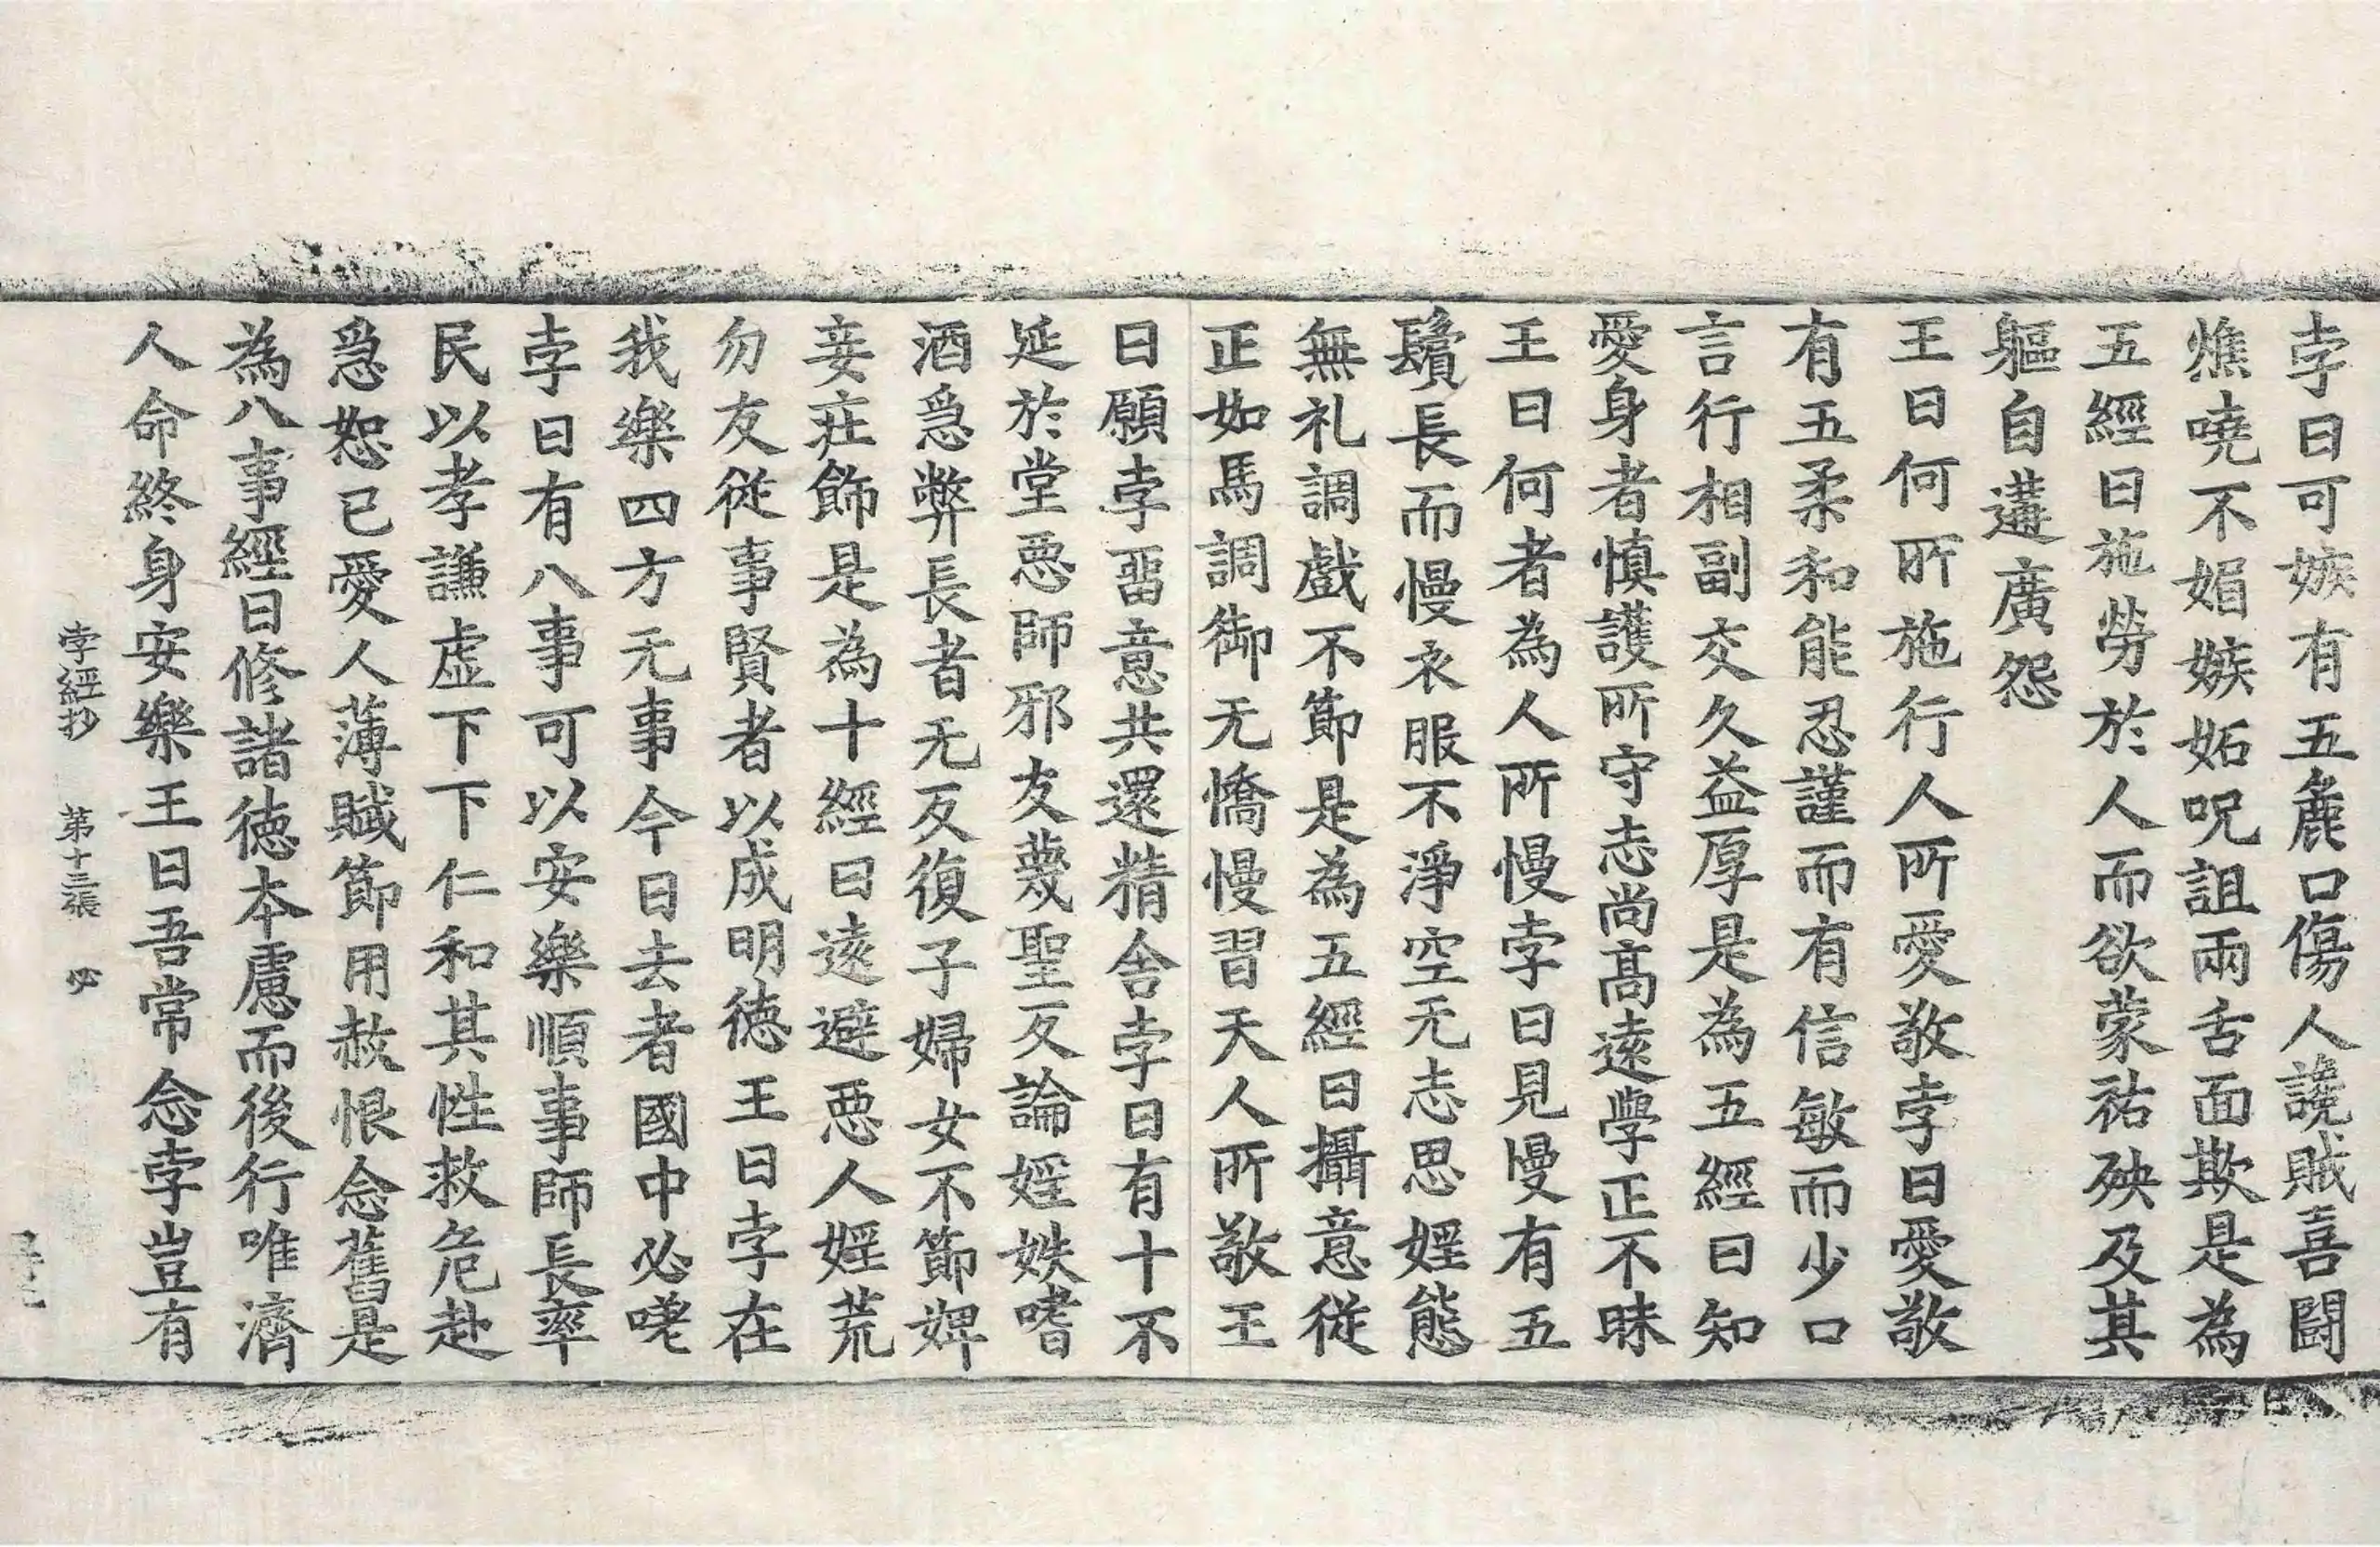 孛曰可嫉有五麁口傷人讒賊喜鬪
燋嘵不媚嫉妬呪詛兩舌面欺是為
五經曰施勞於人而欲蒙祐殃及其
軀自遘廣怨
王曰何所施行人所愛敬孛曰愛敬
有五柔和能忍謹而有信敏而少口
言行相副交久益厚是為五經曰知
愛身者慎護所守志尚髙遠學正不昧
王曰何者為人所慢孛曰見慢有五
鬚長而慢衣服不淨空无志思婬態
無礼調戲不節是為五經曰攝意從
正如馬調御无憍慢習天人所敬王
曰願孛畱意共還精舍孛曰有十不
延於堂惡師邪友蔑聖反論婬妷嗜
酒急弊長者无反復子婦女不節婢
妾莊飾是為十經曰遠避惡人婬荒
勿友從事賢者以成明德王曰孛在
我樂四方无事今日去者國中必嘆
孛曰有八事可以安樂順事師長率
民以孝謙虛下下仁和其性救危赴
急恕己愛人薄賦節用赦恨念舊是
為八事經曰修諸德本慮而後行唯濟
人命終身安樂王曰吾常念孛豈有
孛經抄 第十三張 必